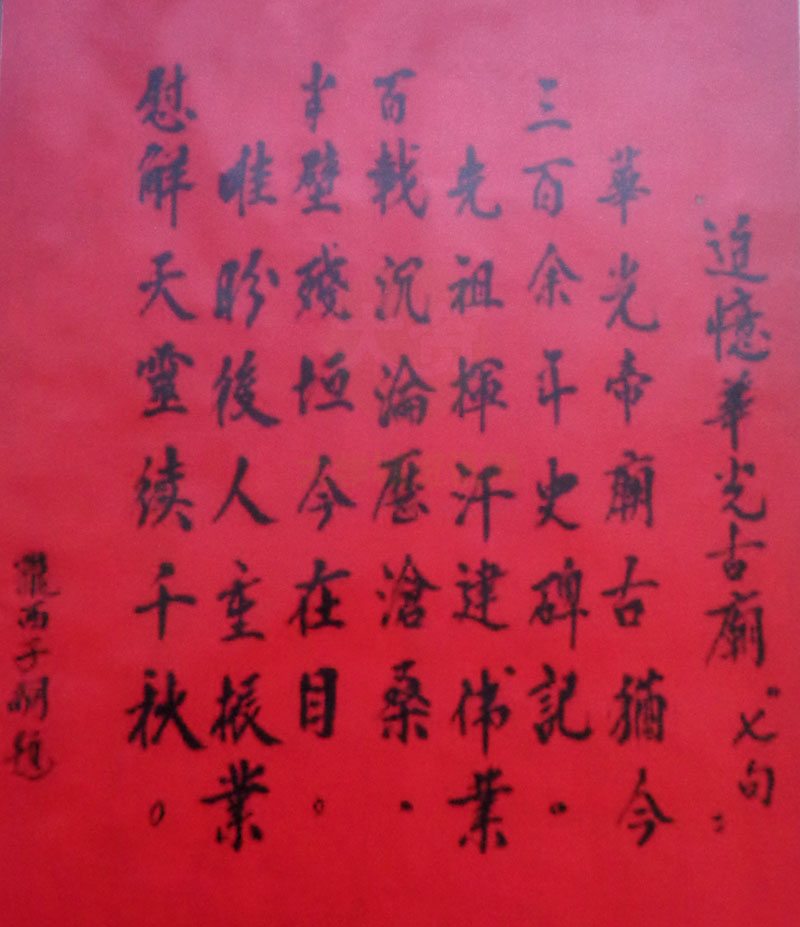 追憶華光古廟"七句:
華光帝廟古猶今
三百余年史碑記.
先祖揮汗建伟業
百載沉淪歷滄桑.
半壁殘垣今在目。
惟盼後人重振業
慰解天靈续千秋。
隴西子嗣題